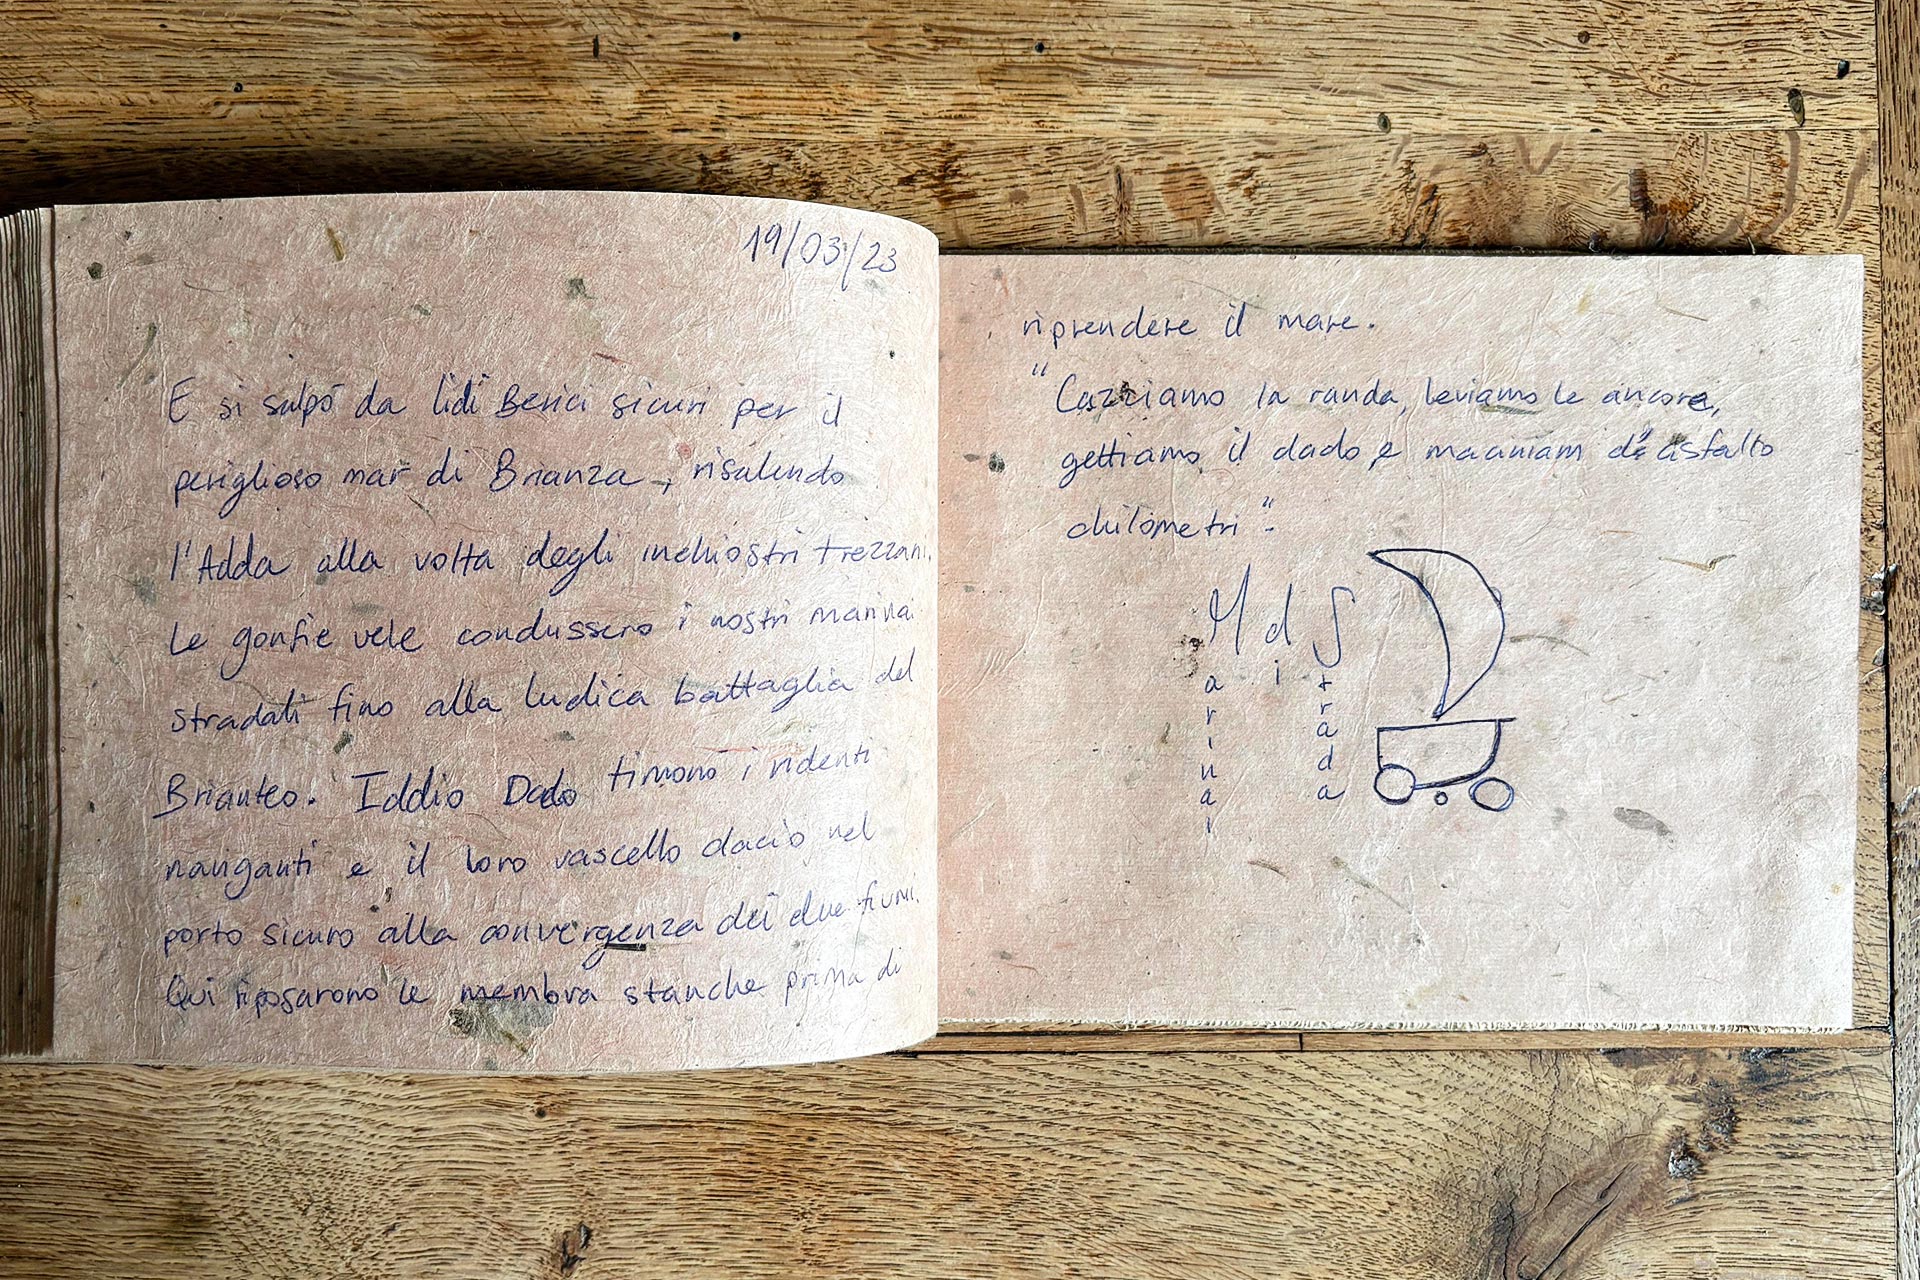 19/03/23
E si salpò da lidi Berici sicuri per il
periglioso mar di Brianza, risalendo
l'Adda alla volta degli inchiostri trezzani.
Le gonfie vele condussero i nostri marinai
stradali fino alla ludica battaglia del
Brianteo. Iddio Dado timonò i ridenti
naviganti e il loro vascello daciò nel
porto sicuro alla convergenza dei due fiumi.
Qui riposarono le membra stanche prima di
riprendere il mare.
"Cazziamo la randa, leviamo le ancore,
gettiamo il dado e maciniam d'asfalto
chilometri".
M d S
arinai
i
trada